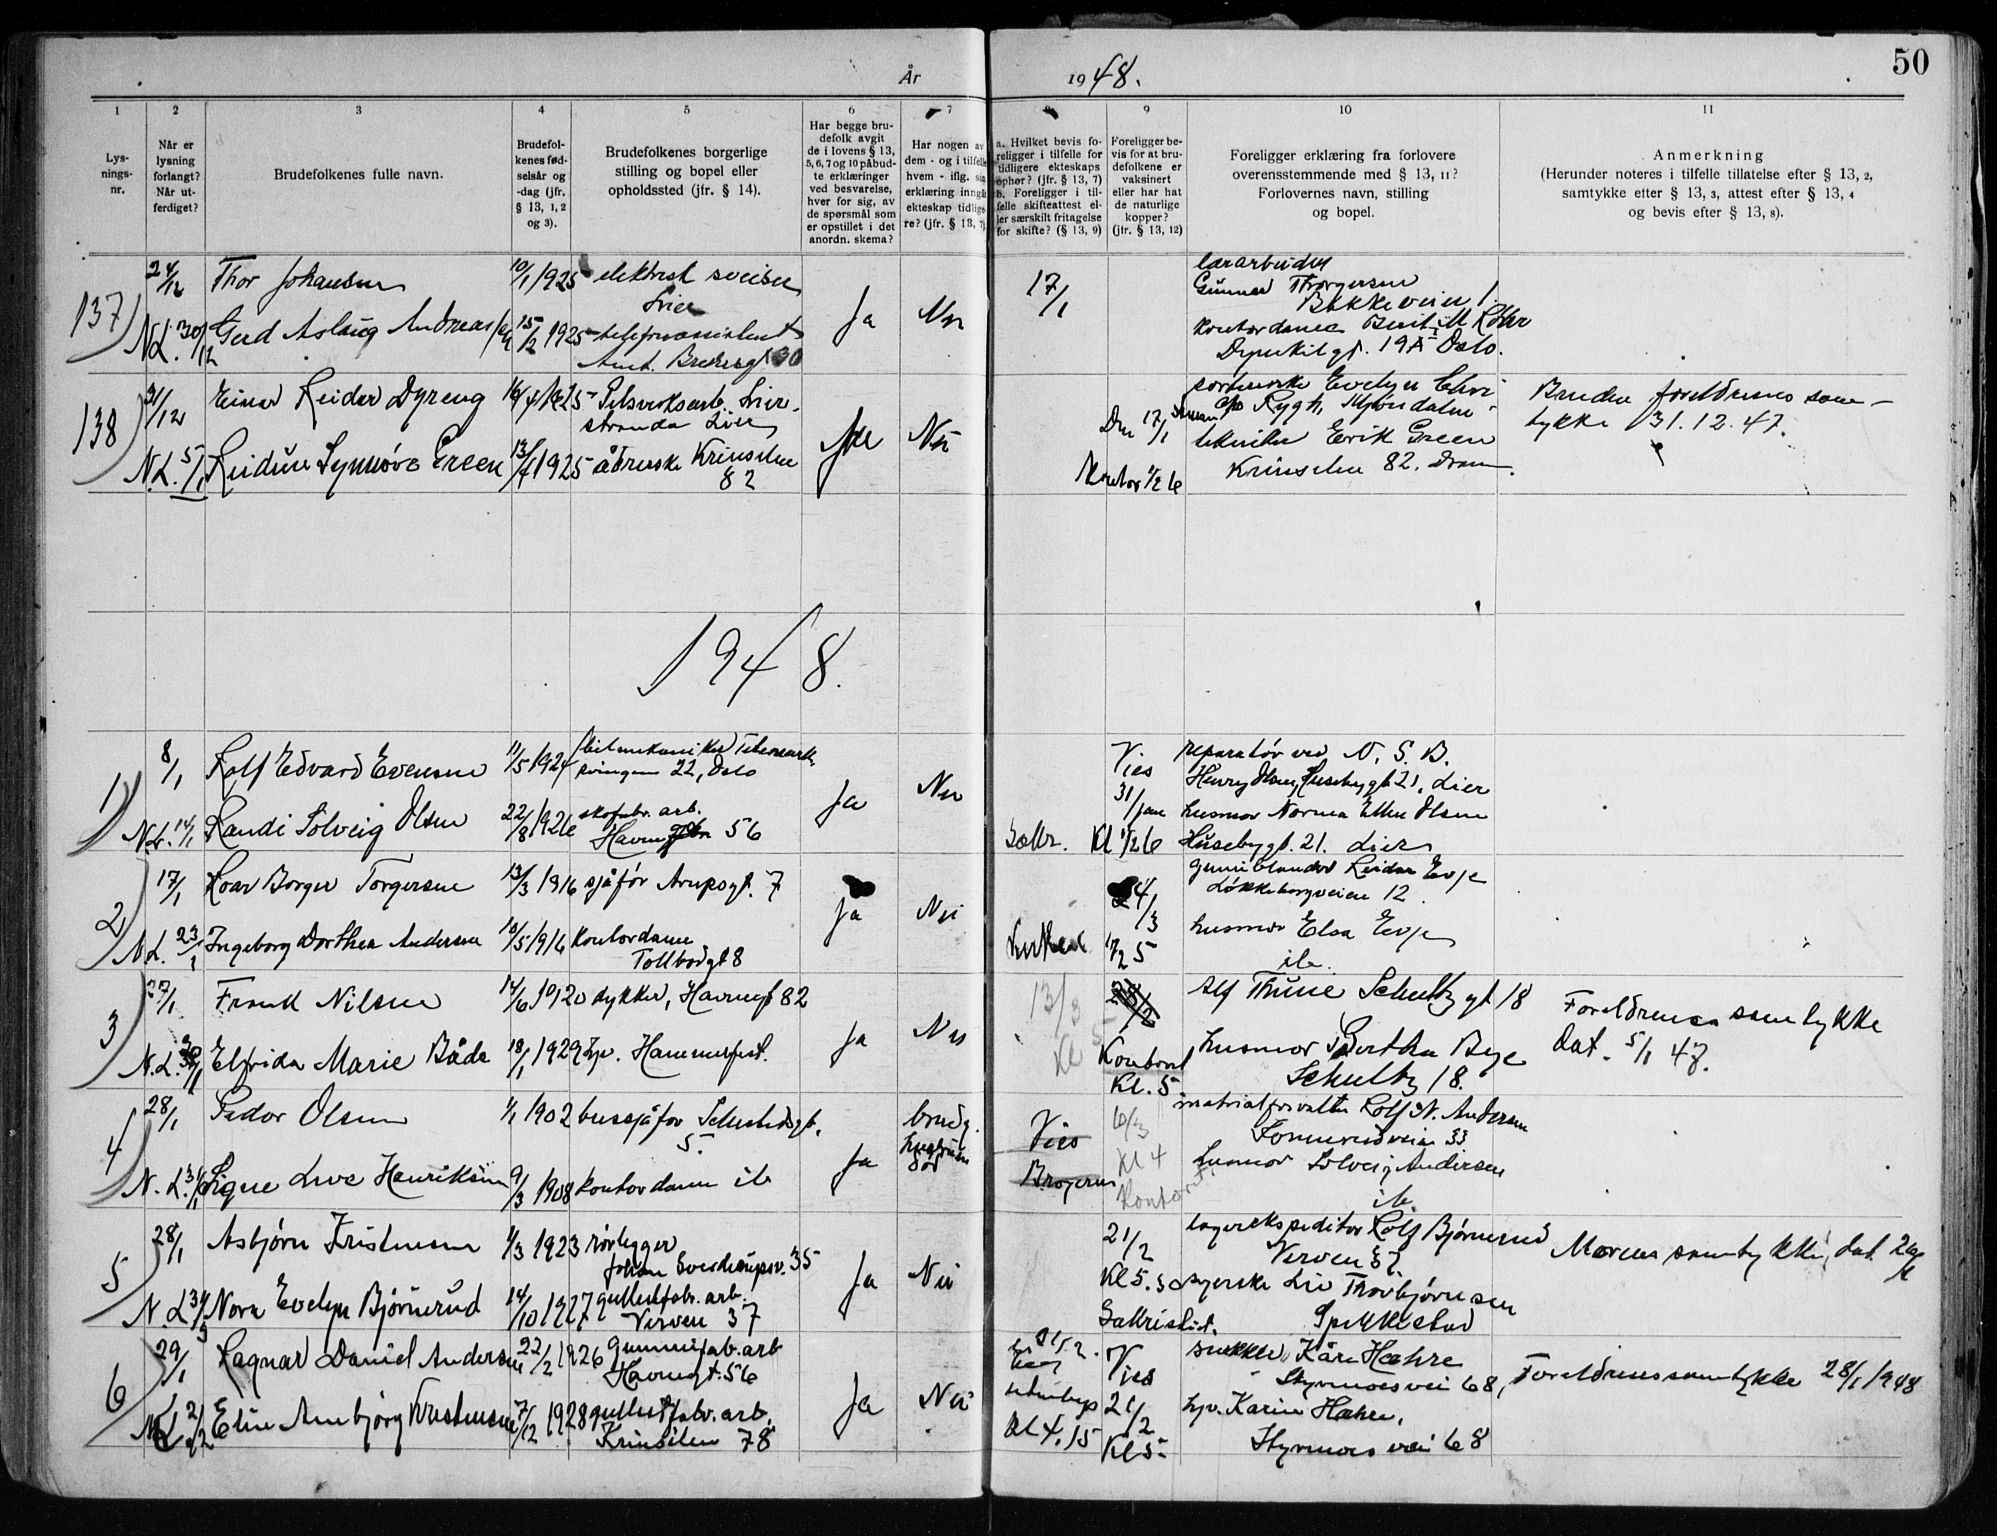 50
År
1948.
1
2
3
4
5
6
7
8
9
10
11
Lys-
nings-
nr.
Når er
lysning
forlangt?
Når ut-
ferdiget?
Brudefolkenes fulle navn.
Brudefol-
kenes fød-
selsår og
-dag (jfr.
§ 13, 1, 2
og 3).
Brudefolkenes borgerlige
stilling og bopel eller
opholdssted (jfr. § 14).
Har begge bru-
defolk avgit
de i lovens § 13,
5, 6, 7 og 10 påbud-
te erklæringer
ved besvarelse,
hver for sig, av
de spørsmål som
er opstillet i det
anordn. skema?
Har nogen av
dem - og i tilfelle
hvem - iflg. sin
erklæring inngåt
ekteskap tidlige-
re? (jfr. § 13, 7)
a. Hvilket bevis fo-
religger i tilfelle for
tidligere ekteskaps
ophør? (jfr. § 13, 7)
b. Foreligger i til-
felle skifteattest el-
ler særskilt fritagelse
for skifte? (§ 13, 9)
Foreligger be-
vis for at bru-
defolkene er
vaksinert
eller har hat
de naturlige
kopper?
(jfr. § 13, 12)
Foreligger erklæring fra forlovere
overensstemmende med § 13, 11?
Forlovernes navn, stilling
og bopel.
Anmerkning
(Herunder noteres i tilfelle tillatelse efter § 13, 2,
samtykke efter § 13, 3, attest efter § 13, 4
og bevis efter § 13, 8).
137)
24/12
Thor Johansen
10/1 1925
elektrisk sveiser
Lier
N.L. 30/12
Gerd Aslaug Andreassen
15/12 1925
telefonassistent
Amt. Bredesgt 30
Ja
Nei
17/1
Gunnar Thorgersen
Bakkeveien 1.
kontordame Berit M. Röhr
19A Oslo.
138)
31/12
Einar Reidar Dyreng
16/4 1925
Lier-
stranda Lier
N.L. 5/1
Reidun Synnøve Green
13/7 1925
Krinsilen
82
Nei
17/1
Kontor 1/2 6
Evelyn
c/o Rygh, Mjøndalen
tekniker Erik Green
Krinsilen 82. Dram.
Brudens foreldrenes sam-
tykke 31.12.47.
1948.
1)
8/1
Rolf Edvard Evensen
11/5 1924
bilmekaniker Telemark
svingen 22, Oslo
N.L. 14/1
Randi Solveig Olsen
22/8 1926
skofabr. arb.
Havnegaten 56
Ja
Nei
Vies
31/jan
Sakr. Kl 1/2 6
reparatør ved N. S. B.
Henry Olsen, Husebygt 21, Lier
husmor Norma Ellen Olsen
Husebygt. 21. Lier
2)
17/1
Roar Borger Torgersen
13/3 1916
sjåfør Arupsgt. 7
N.L. 23/1
Ingeborg Dorthea Andersen
18/5 1916
kontordame
Tollbodgt 8
Ja
Nei
Kirken
1/2 5
Reidar Evje
Løkkebergveien 12.
husmor Elsa Evje
ib.
3)
27/1
Frank Nilsen
14/6 1920
dykker, Havnegt 82
N.L. 30/1
Elfrida Marie Både
18/1 1929
hp. Hammerfest.
Ja
Nei
13/3
Kl 5
Kontoret
Kl. 5
Alf Thune Schultz gt 18
husmor Bertha Bye
Schultz 18.
Foreldrenes samtykke
dat. 5/1 47.
4)
28/1
Peder Olsen
1/1 1902
bussjåfør Schultzgt.
5.
N.L. 31/1
Signe Live Henriksen
9/3 1908
kontordame ib
Ja
brudg.
Vies
Bragernes
6/3
Kl 4
Kontoret
materialforvalter Rolf N. Andersen
33
husmor Solveig Andersen
ib.
5)
28/1
Asbjørn Kristensen
1/3 1923
rørlegger
Johan 35
N.L. 31/1
Nora Evelyn Bjørnerud
14/10 1927
gullistfabr. arb.
Verven 37
Ja
Nei
21/2
Kl 5.30
Sakristiet.
lagerekspeditør Rolf Bjørnerud
Verven 37.
syerske Liv Thorbjørnsen
Spikkestad
Morens samtykke, dat. 26/1
6)
29/1
Ragnar Daniel Andersen
22/2 1926
gummifab. arb
Havnegt. 56
N.L. 2/2
Elin Annbjørg Kristensen
7/12 1928
gullistfabr. arb.
Krinsilen 78
Ja
Nei
Kl 4.15
Vies
21/2
Kl 5
snekker Kåre Hæhre
Styrmoes vei 68,
hp. Karin Hæhre,
Styrmoes vei 68
Foreldrenes samtykke 28/1 1948